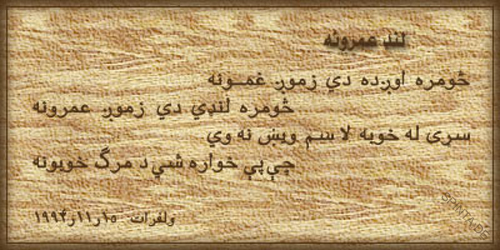 لنډ عمرونه
څومره اوږده دي زموږ غمونه
څومره لنډې دي زموږ عمرونه
سړی له خوبه لا سم ويښ نه وي
چې پې خواره شي د مرگ خوبونه
ولفرات ۱۵ر۱۱ر۱۹۹۴